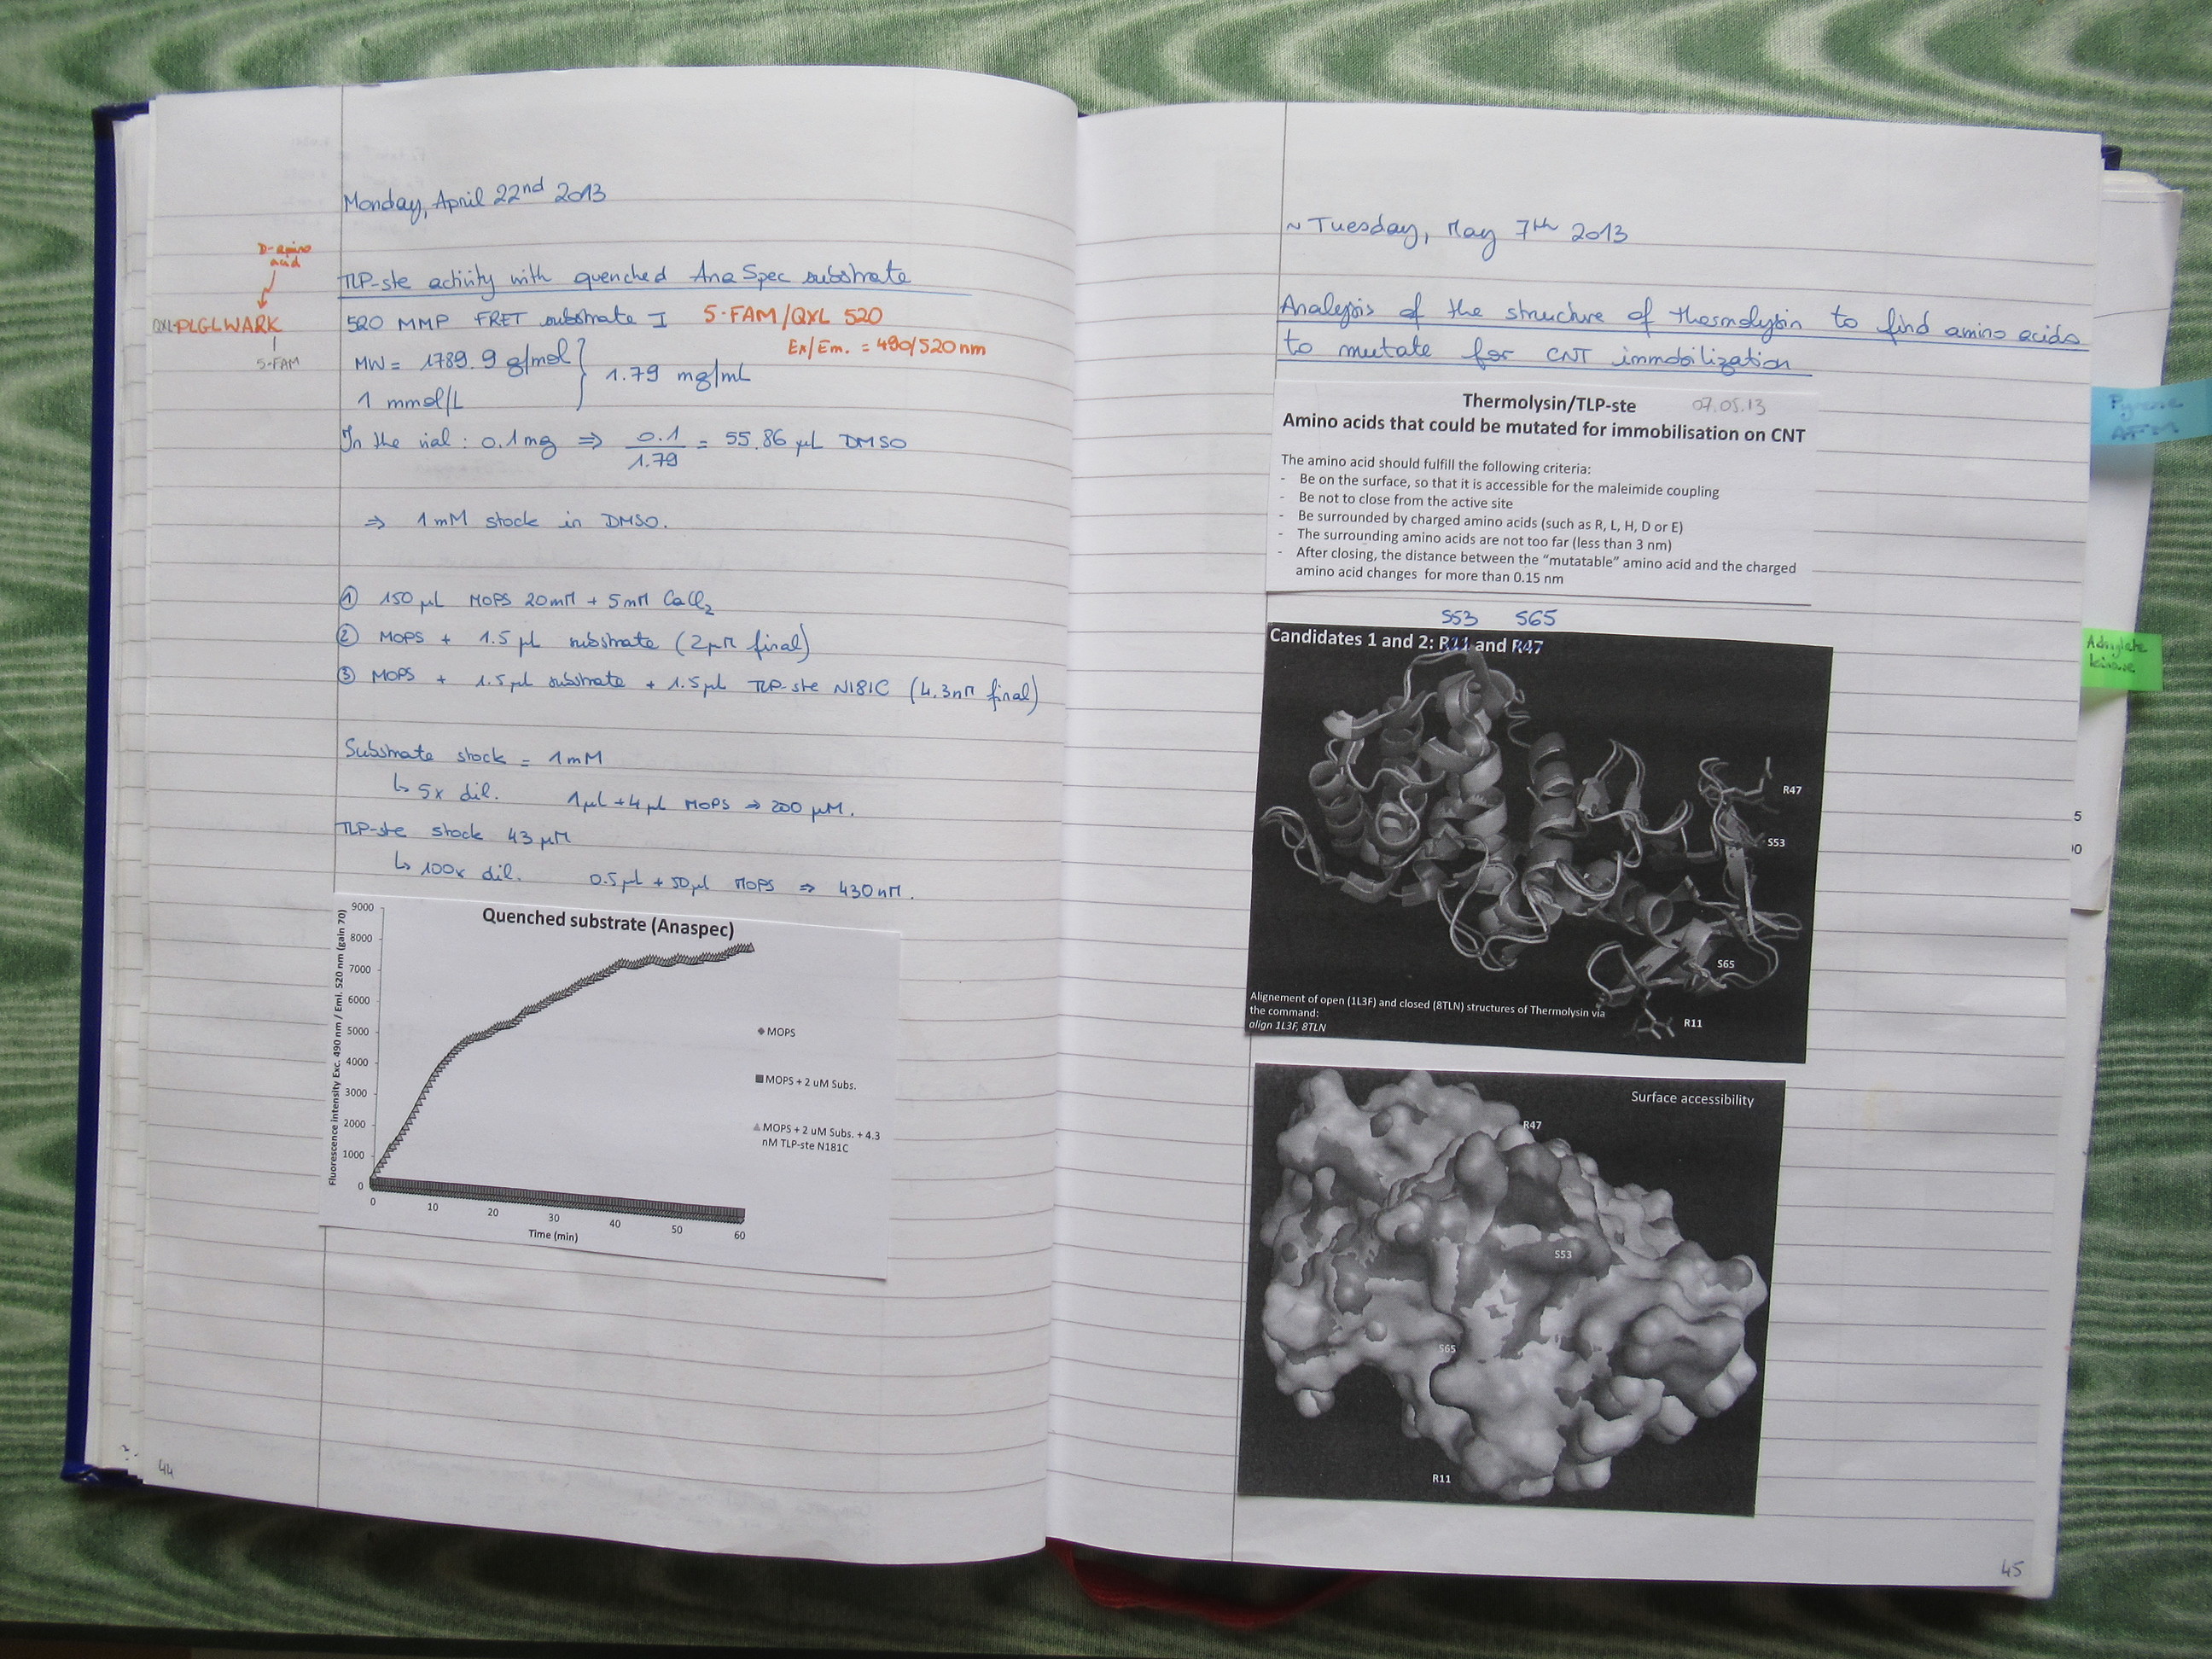 Monday, April 22nd 2013
D-amino
acid
TLP-ste activity with quenched AnaSpec substrate
QXL-PLGLWARK
5-FAM
520 MMP FRET substrate I 5-FAM/QXL 520
Ex/Em. = 490/520 nm
MW = 1789.9 g/mol } 1.79 mg/mL
1 mmol/L
In the vial : 0.1 mg ⇒ 0.1/1.79 = 55.86 µL DMSO
⇒ 1 mM stock in DMSO.
① 150 µl MOPS 20 mM + 5 mM CaCl2
② MOPS + 1.5 µl substrate (2 µM final)
③ MOPS + 1.5 µl substrate + 1.5 µl TLP-ste N181C (4.3 nM final)
Substrate stock = 1 mM
↳ 5x dil. 1 µl + 4 µl MOPS ⇒ 200 µM.
TLP-ste stock 43 µM
↳ 100x dil. 0.5 µl + 50 µl MOPS ⇒ 430 nM.
Quenched substrate (Anaspec)
Fluorescence intensity Exc. 490 nm / Emi. 520 nm (gain 70)
9000
8000
7000
6000
5000
4000
3000
2000
1000
0
0 10 20 30 40 50 60
Time (min)
MOPS
MOPS + 2 uM Subs.
MOPS + 2 uM Subs. + 4.3
nM TLP-ste N181C
44
~ Tuesday, May 7th 2013
Analysis of the structure of thermolysin to find amino acids
to mutate for CNT immobilization
Thermolysin/TLP-ste 07.05.13
Amino acids that could be mutated for immobilisation on CNT
The amino acid should fulfill the following criteria:
- Be on the surface, so that it is accessible for the maleimide coupling
- Be not to close from the active site
- Be surrounded by charged amino acids (such as R, L, H, D or E)
- The surrounding amino acids are not too far (less than 3 nm)
- After closing, the distance between the “mutatable” amino acid and the charged
amino acid changes for more than 0.15 nm
S53 S65
Candidates 1 and 2: R11 and R47
R47
S53
S65
R11
Alignement of open (1L3F) and closed (8TLN) structures of Thermolysin via
the command:
align 1L3F, 8TLN
Surface accessibility
R47
S53
S65
R11
45
Pyrene
AFM
Adenylate
kinase
5